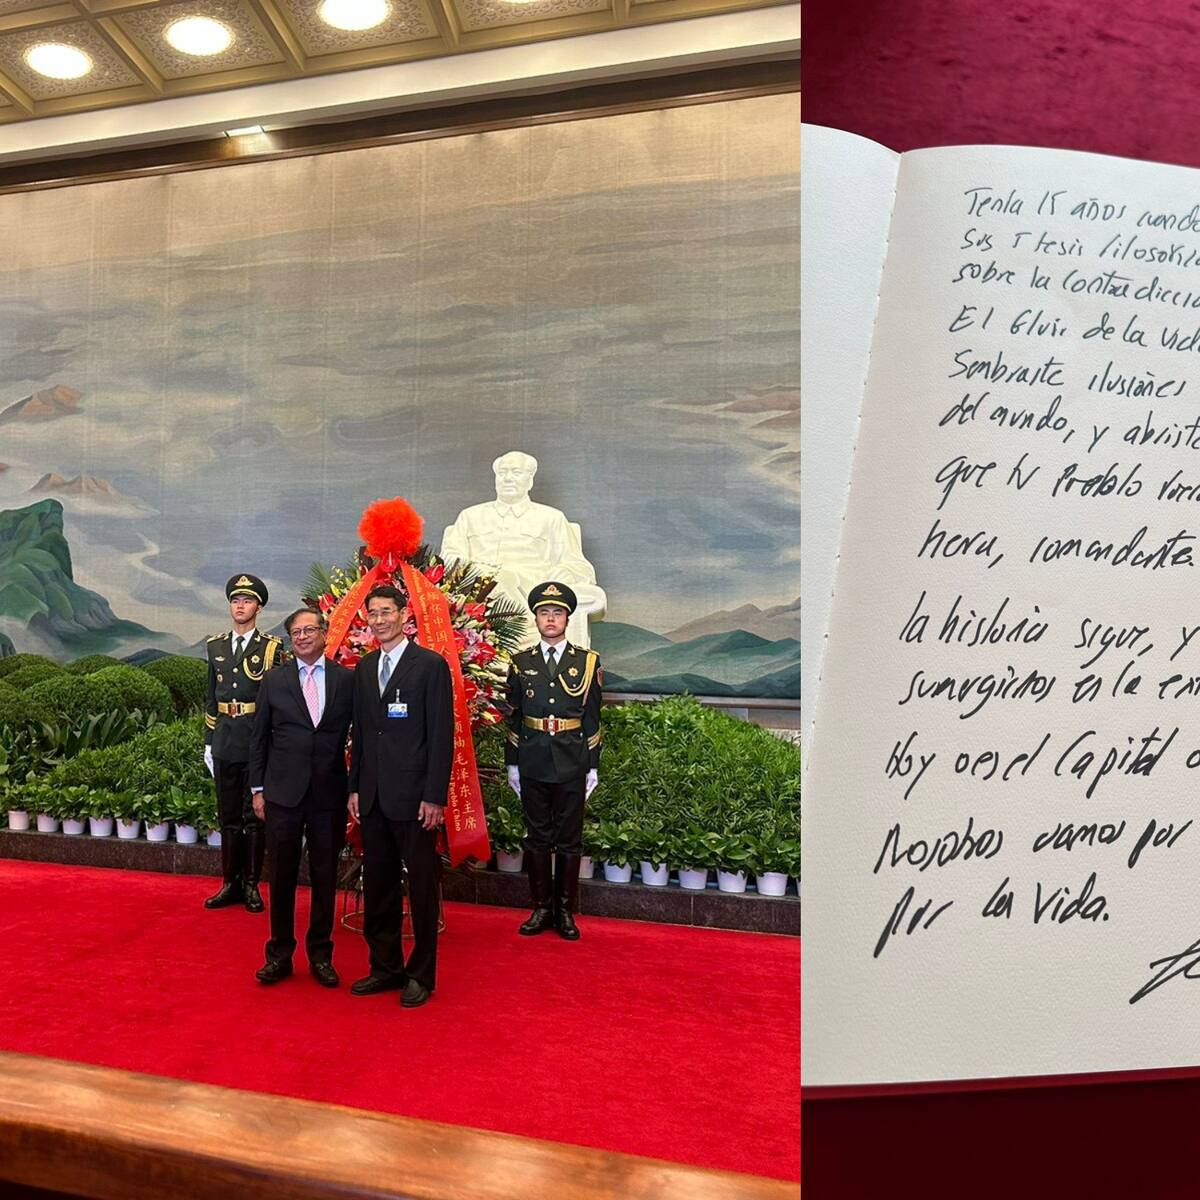 缅怀中国人
领袖毛泽东主席
Pueblo Chino
Tenía 15 años cuando
sus 5 tesis filosófica
sobre la contradicció
El fluir de la vida
Sembraste ilusiones
del mundo, y abriste
que tu Pueblo
hera, comandante.
la historia sigue, y
sumergirnos en la
Hoy es el Capital o
Nosotros vamos por
por la Vida.